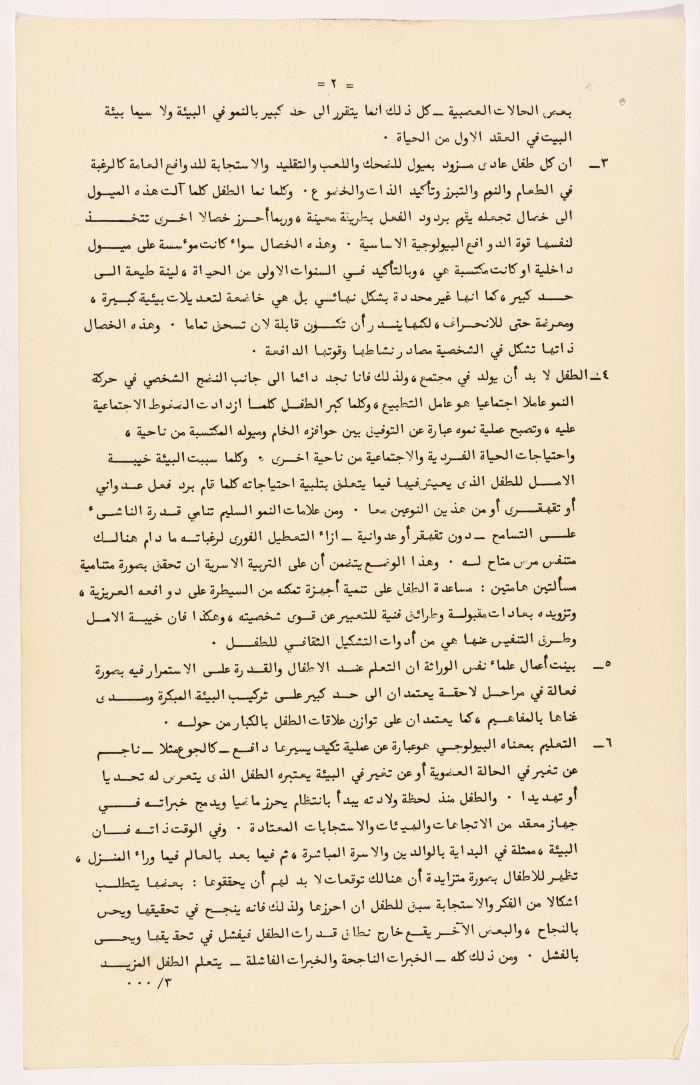 = ٢ =
بعض الحالات العصبية ــ كل ذلك انما يتقرر الى حد كبير بالنمو في البيئة ولا سيما بيئة
البيت في العقد الاول من الحياة ٠
٣ــ ان كل طفل عادى مزود بميول للضحك واللعب والتقليد والاستجابة للدوافع العامة كالرغبة
في الطعام والنوم والتبرز وتأكيد الذات والخضوع ٠ وكلما نما الطفل كلما آلت هذه الميول
الى خصال تجعله يقوم بردود الفعل بطريقة معينة ، وربما أحرز خصالا اخرى تتخذ
لنفسها قوة الدوافع البيولوجية الاساسية ٠ وهذه الخصال سواء كانت مؤسسة على ميول
داخلية او كانت مكتسبة هي ، وبالتأكيد في السنوات الاولى من الحياة ، لينة طيعة الى
حد كبير ، كما انها غير محددة بشكل نهائي بل هي خاضعة لتعديلات بيئية كبيرة ،
ومعرضة حتى للانحراف ، لكنها يندر أن تكون قابلة لان تسحق تماما ٠ وهذه الخصال
ذاتها تشكل في الشخصية مصادر نشاطها وقوتها الدافعة ٠
٤ــ الطفل لا بد أن يولد في مجتمع ، ولذلك فانا نجد دائما الى جانب النضج الشخصي في حركة
النمو عاملا اجتماعيا هو عامل التطبيع ، وكلما كبر الطفل كلما ازدادت الضغوط الاجتماعية
عليه ، وتصبح عملية نموه عبارة عن التوفيق بين حوافزه الخام وميوله المكتسبة من ناحية ،
واحتياجات الحياة الفردية والاجتماعية من ناحية اخرى ٠ وكلما سببت البيئة خيبة
الامل للطفل الذى يعيش فيها فيما يتعلق بتلبية احتياجاته كلما قام برد فعل عدواني
أو تقهقرى أو من هذين النوعين معا ٠ ومن علامات النمو السليم تنامي قدرة الناشىء
على التسامح ــ دون تقهقر أو عدوانية ــ ازاء التعطيل الفورى لرغباته ما دام هنالك
متنفس مرض متاح له ٠ وهذا الوضع يتضمن أن على التربية الاسرية ان تحقق بصورة متنامية
مسألتين هامتين : مساعدة الطفل على تنمية أجهزة تمكنه من السيطرة على دوافعه الغريزية ،
وتزويده بعادات مقبولة وطرائق فنية للتعبير عن قوى شخصيته ، وهكذا فان خيبة الامل
وطرق التنفيس عنها هي من أدوات التشكيل الثقافي للطفل ٠
٥ــ بينت أعمال علماء نفس الوراثة ان التعلم عند الاطفال والقدرة على الاستمرار فيه بصورة
فعالة في مراحل لاحقة يعتمدان الى حد كبير على تركيب البيئة المبكرة ومدى
غناها بالمفاهيم ، كما يعتمدان على توازن علاقات الطفل بالكبار من حوله ٠
٦ــ التعليم بمعناه البيولوجي هو عبارة عن عملية تكيف يسيرها دافع ــ كالجوع مثلا ــ ناجم
عن تغير في الحالة العضوية أو عن تغير في البيئة يعتبره الطفل الذى يتعرض له تحديا
أو تهديدا ٠ والطفل منذ لحظة ولادته يبدأ بانتظام يحرز ماضيا ويدمج خبراته في
جهاز معقد من الاتجاهات والهيئات والاستجابات المعتادة ٠ وفي الوقت ذاته فان
البيئة ، ممثلة في البداية بالوالدين والاسرة المباشرة ، ثم فيما بعد بالعالم فيما وراء المنزل ،
تظهر للاطفال بصورة متزايدة أن هنالك توقعات لا بد لهم أن يحققوها : بعضها يتطلب
اشكالا من الفكر والاستجابة سبق للطفل ان احرزها ولذلك فانه ينجح في تحقيقها ويحس
بالنجاح ، والبعض الآخر يقع خارج نطاق قدرات الطفل فيفشل في تحقيقها ويحس
بالفشل ٠ ومن ذلك كله ــ الخبرات الناجحة والخبرات الفاشلة ــ يتعلم الطفل المزيد
٣/٠٠٠